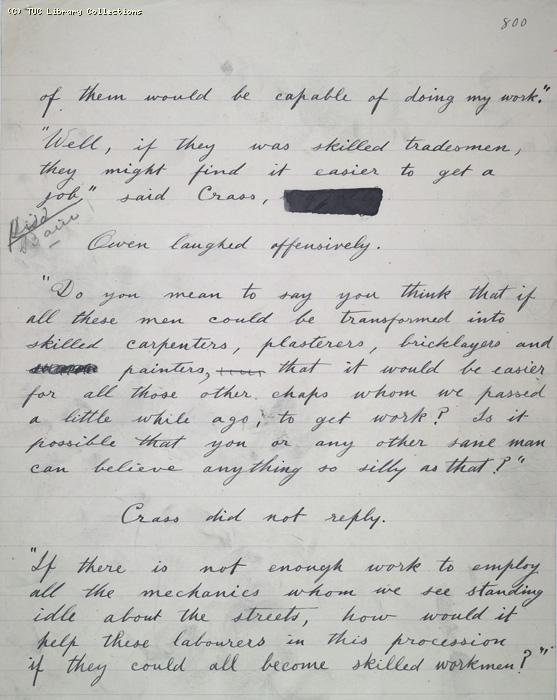 (C) TUC Library Collections
800
of them would be capable of doing my work."
"Well, if they was skilled tradesmen,
they might find it easier to get a
job," said Crass,
Owen laughed offensively.
"Do you mean to say you think that if
all these men could be transformed into
skilled carpenters, plasterers, bricklayers and
painters, that it would be easier
for all those other chaps whom we passed
a little while ago, to get work? Is it
possible that you or any other sane man
can believe anything so silly as that?"
Crass did not reply.
"If there is not enough work to employ
all the mechanics whom we see standing
idle about the streets, how would it
help these labourers in this procession
if they could all become skilled workmen?"